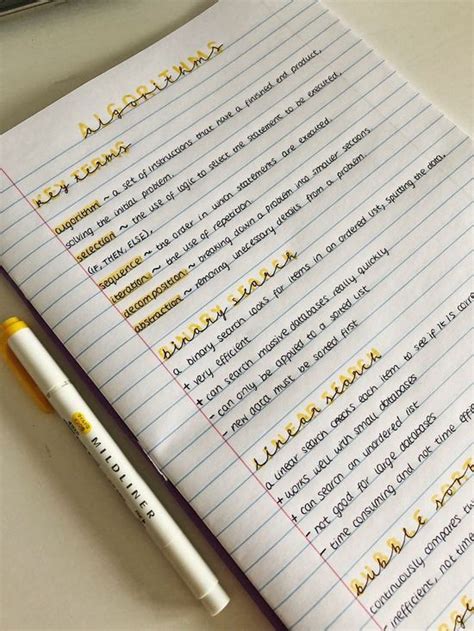 ALGORITHMS
algorithms
KEY TERMS
algorithm ~ a set of instructions that have a finished end product,
solving the initial problem.
selection ~ the use of logic to select the statement to be executed.
(IF, THEN, ELSE).
sequence ~ the order in which statements are executed.
iteration ~ the use of repetition.
decomposition ~ breaking down a problem into smaller sections
abstraction ~ removing unnecessary details from a problem.
BINARY SEARCH
a binary search looks for items in an ordered list, splitting the data.
+ very efficient
+ can search massive databases really quickly
- can only be applied to a sorted list
- new data must be sorted first
LINEAR SEARCH
a linear search checks each item to see if it is
+ works well with small databases
+ can search an unordered list
- not good for large databases
- time consuming and not time
BUBBLE
continuously compares
- inefficient, not
MILDLINER